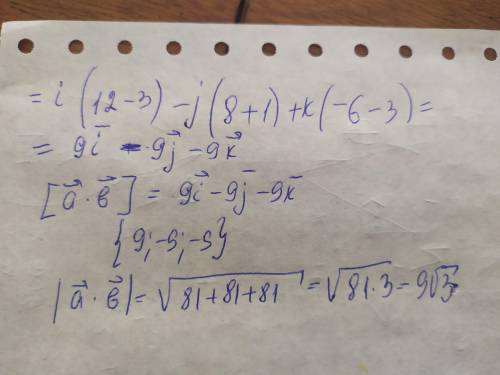 = i (12-3) - j (8+1) + k (-6-3) =
= 9i⃗ - 9j⃗ - 9k⃗
[a⃗ · b⃗] = 9i⃗ - 9j - 9k̄
{9; -9; -9}
|a⃗ · b⃗| = √81+81+81 = √81·3 = 9√3